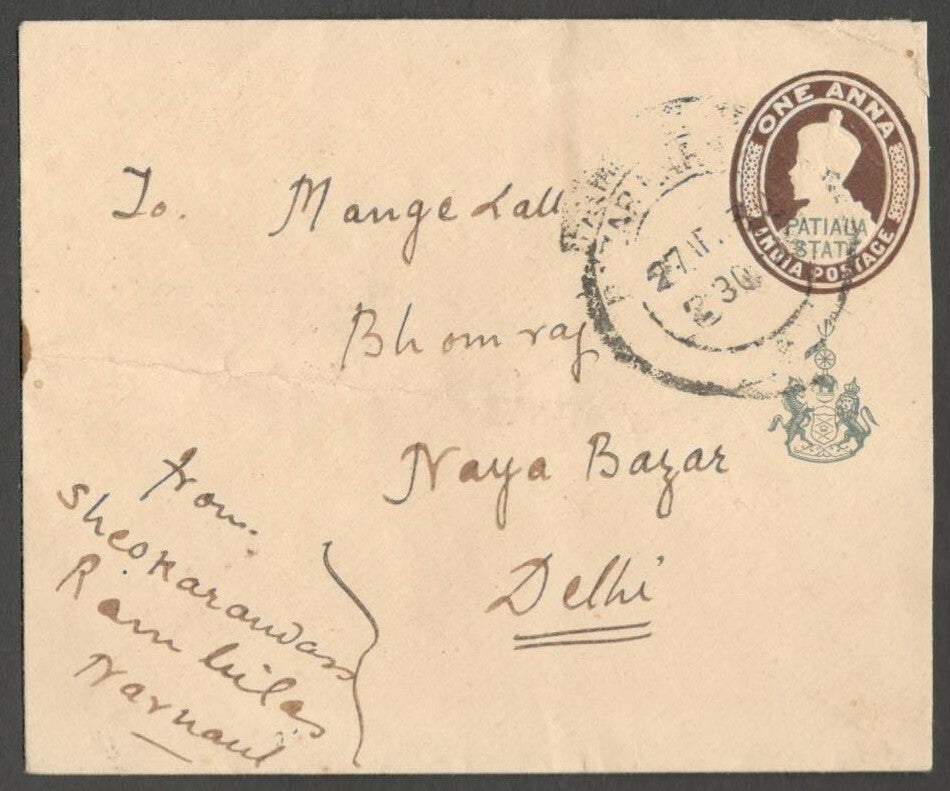 ONE ANNA
PATIALA
STATE
INDIA POSTAGE
27 AP
30
To. Mange Lall
Bhomraj
Naya Bazar
Delhi
from.
Sheokarandass
Ram bilas
Narnaul